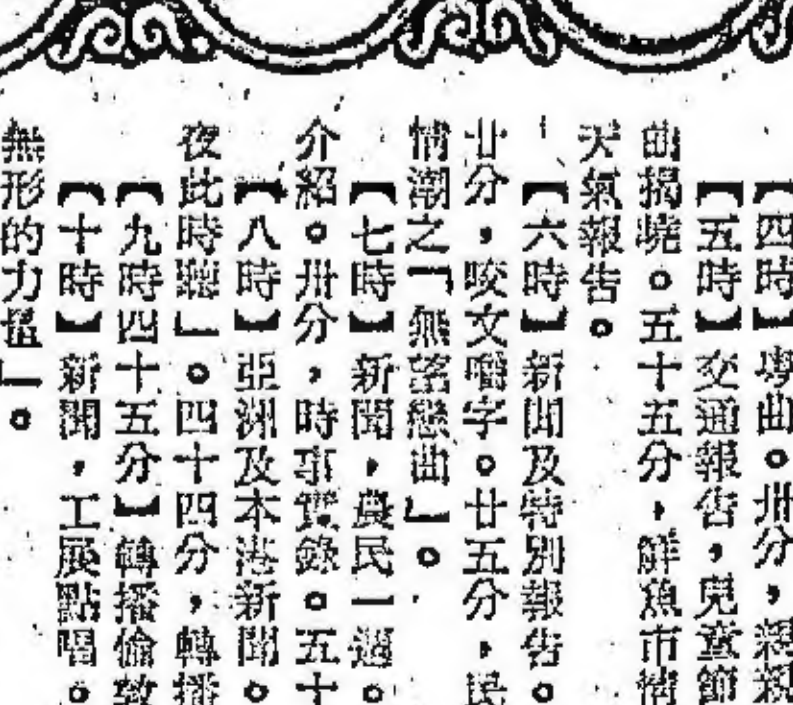 【四時】粵曲。卅分，
【五時】交通報告，兒童節
曲揭曉。五十五分，鮮魚市情
天氣報告。
【六時】新聞及特別報告。
廿分，咬文嚼字。廿五分，民
情潮之「無望戀曲」。
【七時】新聞，農民一週。
介紹。卅分，時事實錄。五十
【八時】亞洲及本港新聞。
夜此時聽」。四十四分，轉播
【九時四十五分】轉播倫敦
【十時】新聞，工展點唱。
無形的力量」。